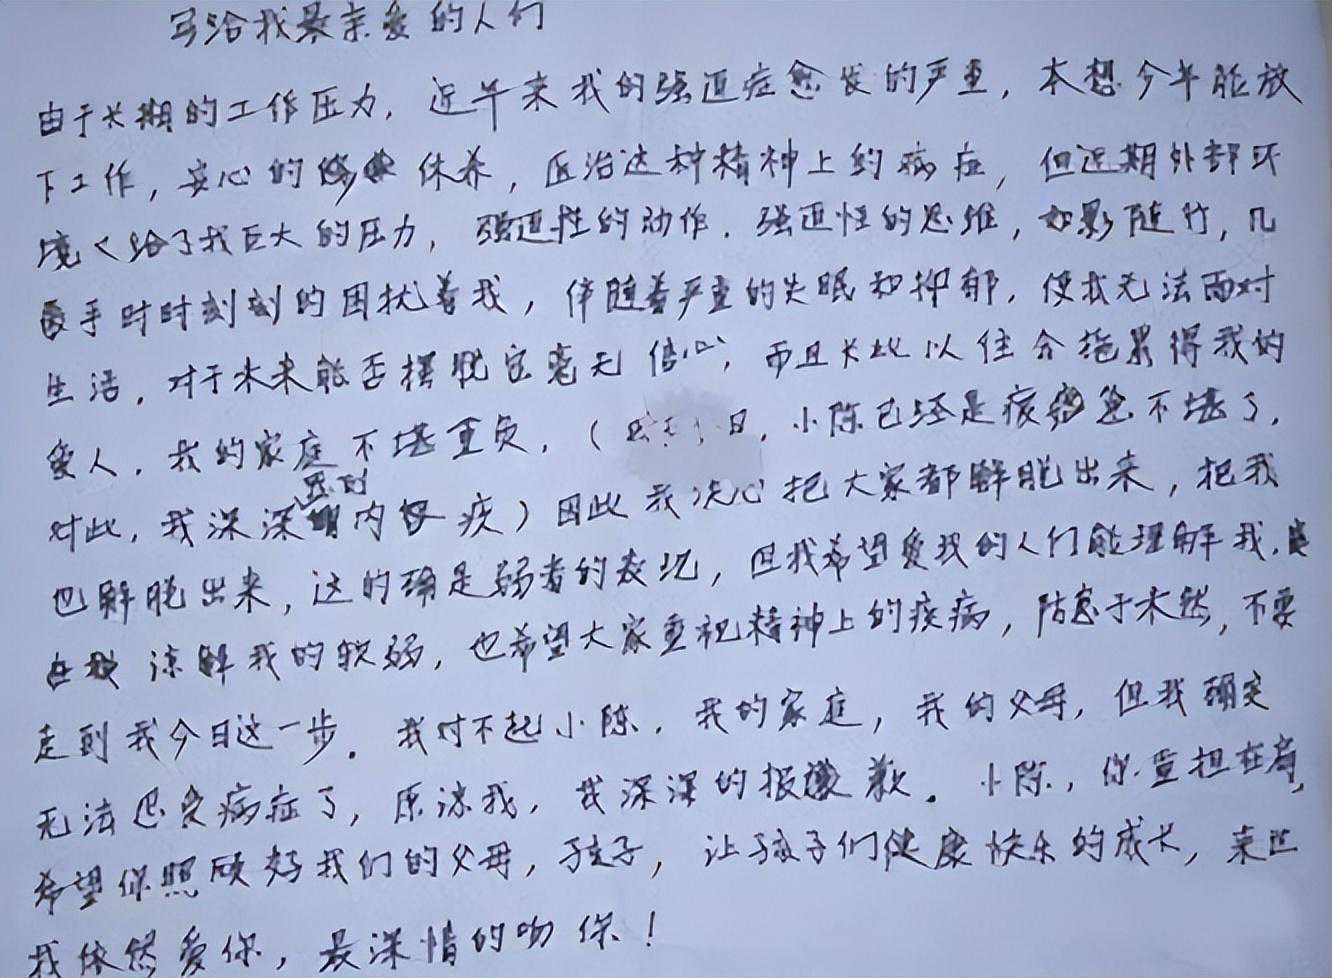 写给我最亲爱的人们
由于长期的工作压力，近年来我的强迫症愈发的严重，本想今年能放
下工作，安心的休养，医治这种精神上的病症，但近期外部环
境又给了我巨大的压力，强迫性的动作．强迫性的思维，如影随行，几
乎时时刻刻的困扰着我，伴随着严重的失眠和抑郁，使我无法面对
生活．对于未来能否摆脱它毫无信心，而且长此以往会拖累得我的
爱人．我的家庭不堪重负．（日，小陈已经是疲惫不堪了，
对此，我深深内疚）因此我决心把大家都解脱出来，把我
也解脱出来，这的确是弱者的表现，但我希望爱我的人们能理解我．
谅解我的软弱，也希望大家重视精神上的疾病，防患于未然，不要
走到我今日这一步．我对不起小陈．我的家庭，我的父母，但我确实
无法忍受病症了，原谅我，我深深的报歉．小陈，你重担在肩，
希望你照顾好我们的父母，孩子，让孩子们健康快乐的成长，来世
我依然爱你，最深情的吻你！